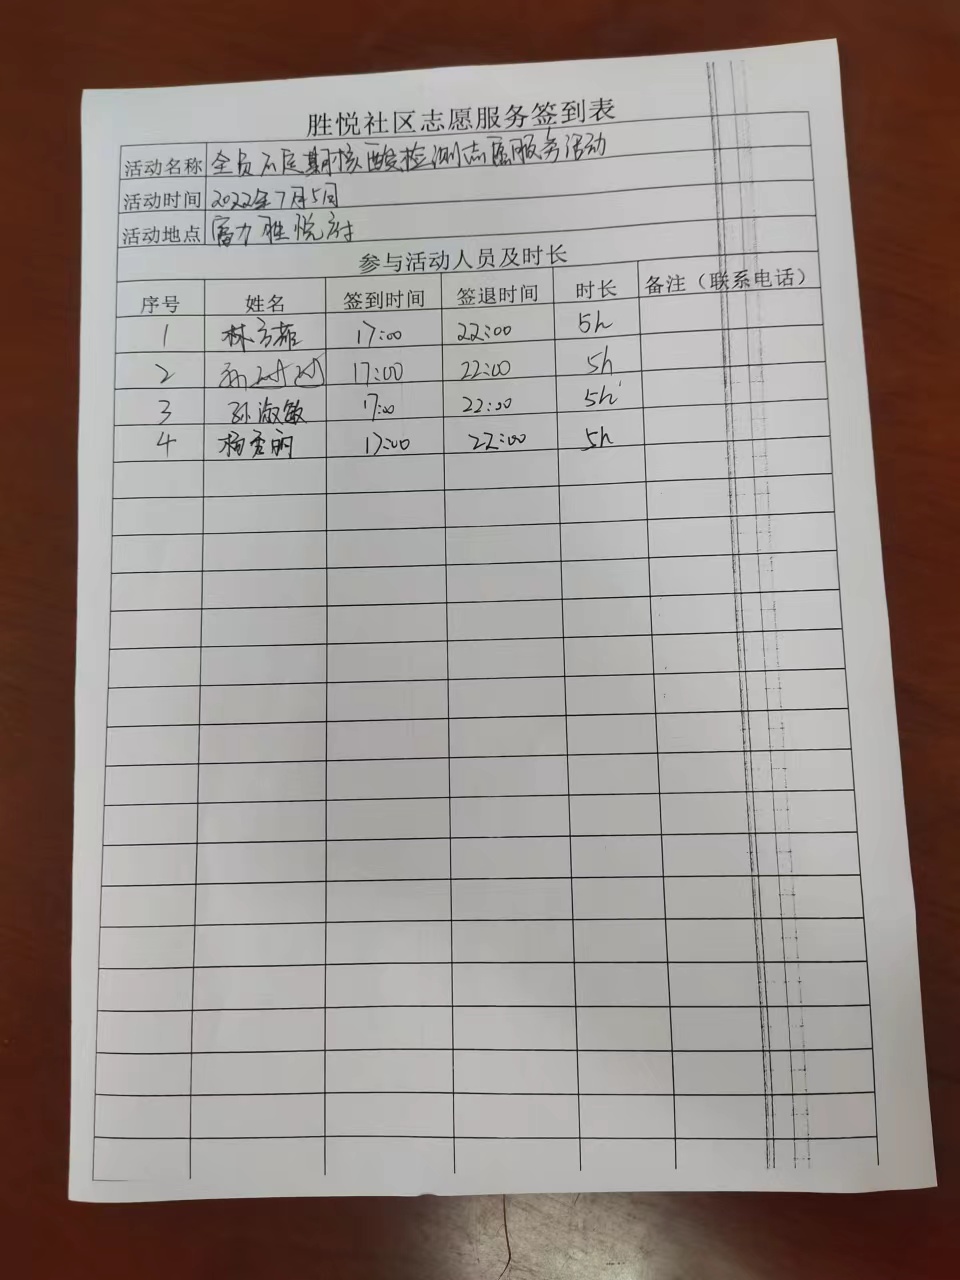 胜悦社区志愿服务签到表
活动名称 全员不定期核酸检测志愿服务活动
活动时间 2022年7月5日
活动地点 富力胜悦府
参与活动人员及时长
序号 姓名 签到时间 签退时间 时长 备注（联系电话）
1 林 17:00 22:00 5h
2 17:00 22:00 5h
3 孙淑敏 17:00 22:00 5h
4 杨秀丽 17:00 22:00 5h